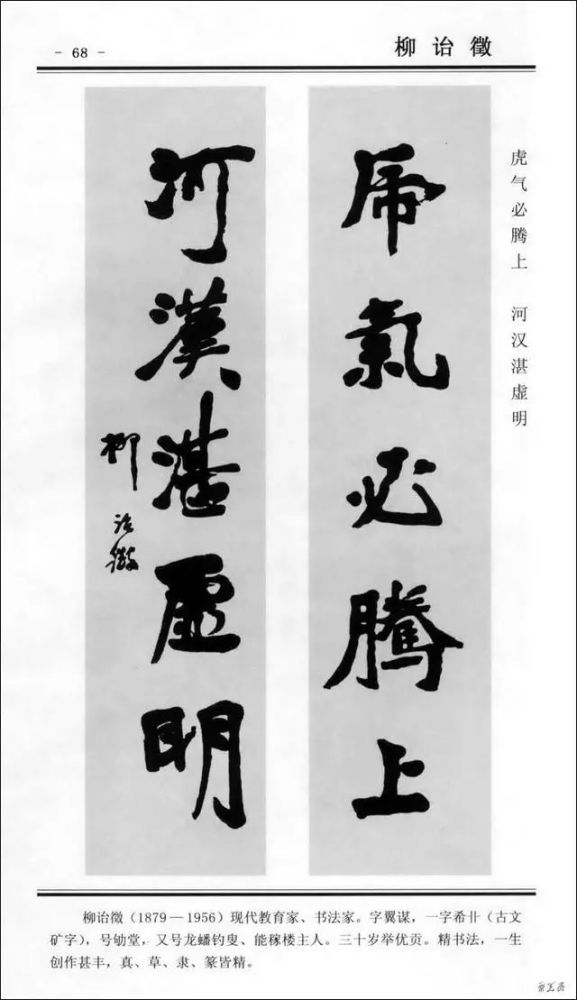 - 68 -
柳诒徵
虎气必腾上 河汉湛虚明
虎氣必騰上
河漢湛虛明
柳詒徵
柳诒徵（1879—1956）现代教育家、书法家。字翼谋，一字希卝（古文
矿字），号劬堂，又号龙蟠钓叟、能稼楼主人。三十岁举优贡。精书法，一生
创作甚丰，真、草、隶、篆皆精。